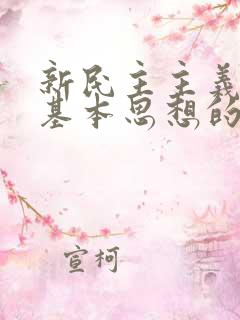 新民主主义
基本思想的
宣柯